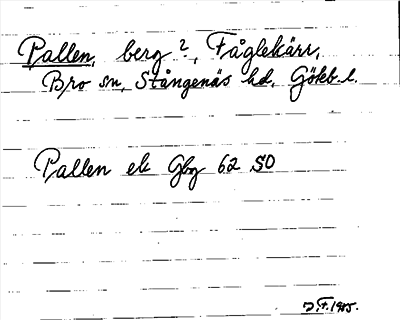 Pallen, berg?, Fåglekärr,
Bro sn, Stångenäs hd, Gökb. l.
Pallen ek Gbg 62 SO